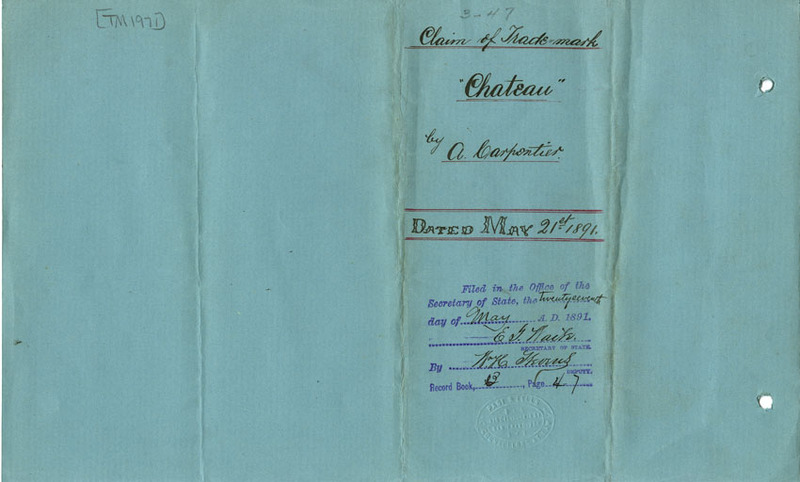 [TM1971]
3-47
Claim of Trade-mark
"Chateau"
by
A. Carpentier.
DATED MAY 21st 1891.
Filed in the Office of the
Secretary of State, the twenty seventh
day of May A. D. 1891.
E. G. Waite
SECRETARY OF STATE.
By W. H.
DEPUTY.
Record Book, 3, Page 47